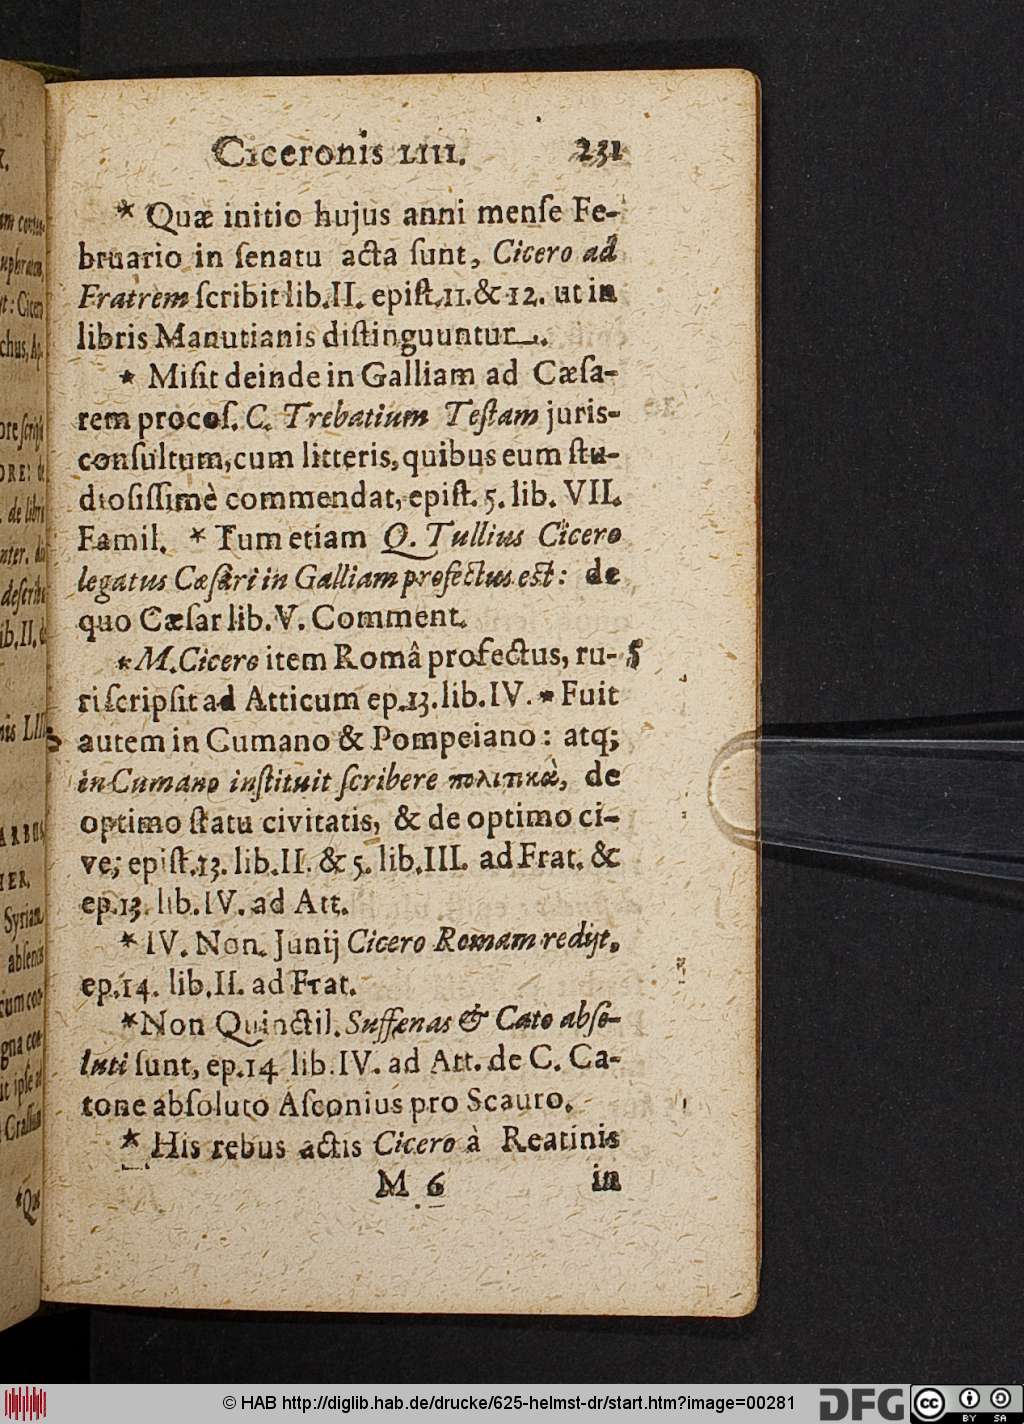 Ciceronis LIII. 231
* Quæ initio hujus anni menſe Fe-
bruario in ſenatu acta ſunt, Cicero ad
Fratrem ſcribit lib.II. epiſt.11.& 12. ut in
libris Manutianis diſtinguuntur.
* Miſit deinde in Galliam ad Cæſa-
rem procoſ. C. Trebatium Teſtam juris-
conſultum,cum litteris,quibus eum ſtu-
dioſiſſimè commendat, epiſt. 5. lib. VII.
Famil. * Tum etiam Q. Tullius Cicero
legatus Cæſari in Galliam profectus est: de
quo Cæſar lib. V. Comment.
* M.Cicero item Româ profectus, ru- 5
ri ſcripſit ad Atticum ep.13.lib.IV. * Fuit
autem in Cumano & Pompeiano: atq;
in Cumano inſtituit ſcribere πολιτικὰ, de
optimo ſtatu civitatis, & de optimo ci-
ve; epiſt.13. lib.II. & 5. lib.III. ad Frat. &
ep.13. lib.IV. ad Att.
* IV. Non. Junij Cicero Romam redijt,
ep.14. lib.II. ad Frat.
* Non Quinctil. Suffenas & Cato abſo-
luti ſunt, ep.14 lib.IV. ad Att. de C. Ca-
tone abſoluto Aſconius pro Scauro.
* His rebus actis Cicero à Reatinis
M 6 in
© HAB http://diglib.hab.de/drucke/625-helmst-dr/start.htm?image=00281
DFG
cc BY SA